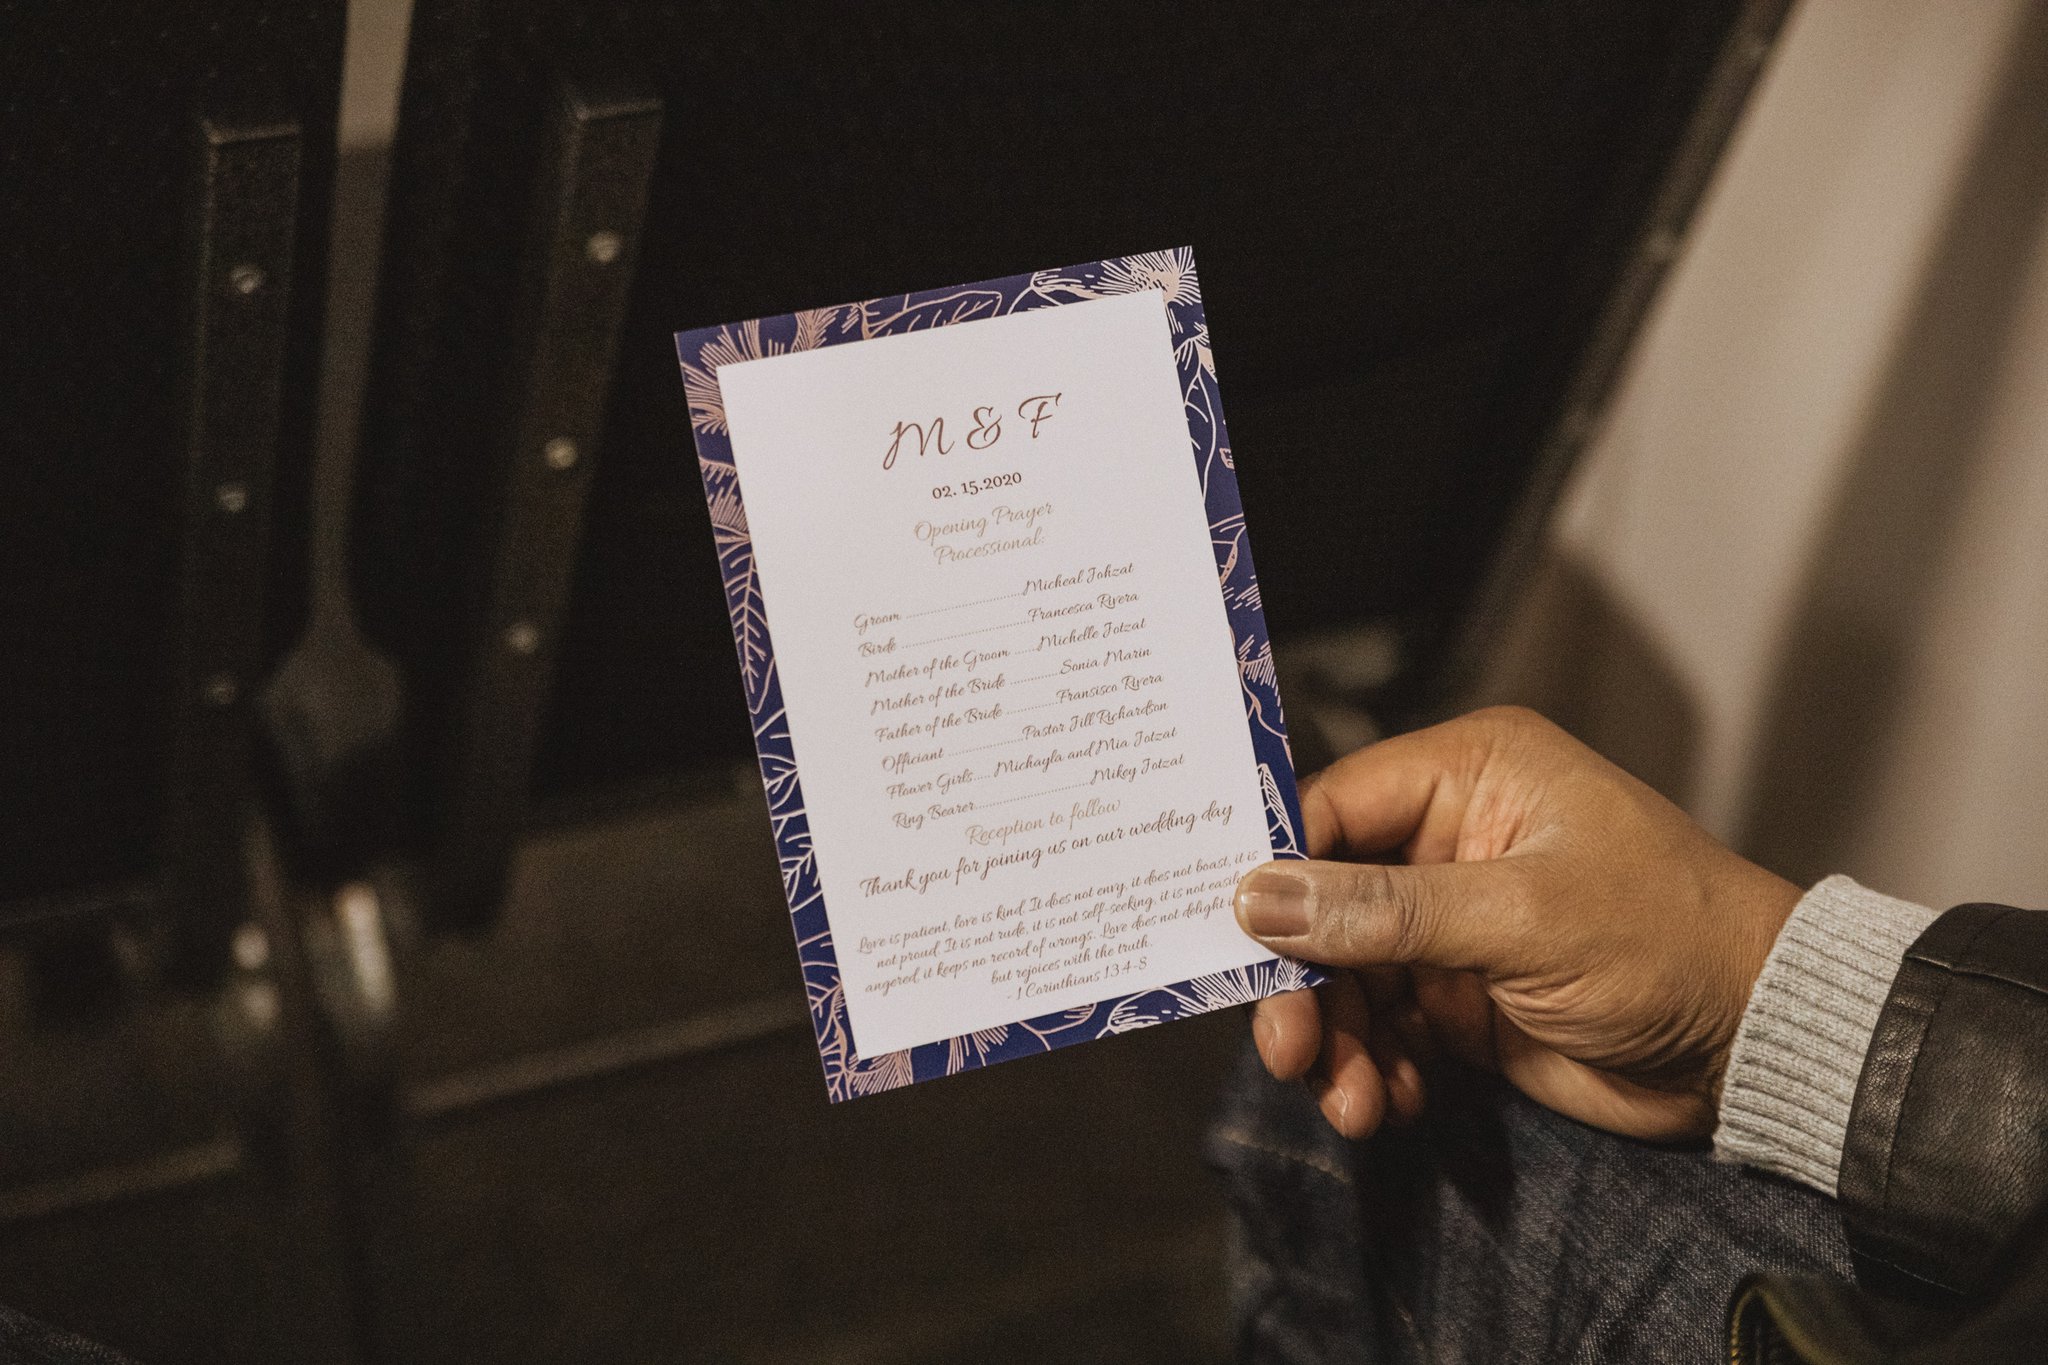 M & F
02. 15.2020
Opening Prayer
Processional:
Groom ..............................Micheal Johzat
Birde ................................Francesca Rivera
Mother of the Groom ......Michelle Jotzat
Mother of the Bride .............Sonia Marin
Father of the Bride .............Fransisco Rivera
Officiant ...................Pastor Jill Richardson
Flower Girls.... Michayla and Mia Jotzat
Ring Bearer............................Mikey Jotzat
Reception to follow
Thank you for joining us on our wedding day
Love is patient, love is kind. It does not envy, it does not boast, it is
not proud. It is not rude, it is not self-seeking, it is not easily
angered, it keeps no record of wrongs. Love does not delight
but rejoices with the truth.
- 1 Corinthians 13:4-8